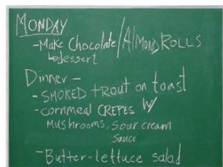 MONDAY
-Make Chocolate/Almond ROLLS
dessert
Dinner -
-SMOKED trout on toast
-cornmeal CREPES w/
Mushrooms, sour cream
sauce
-Butter-lettuce salad